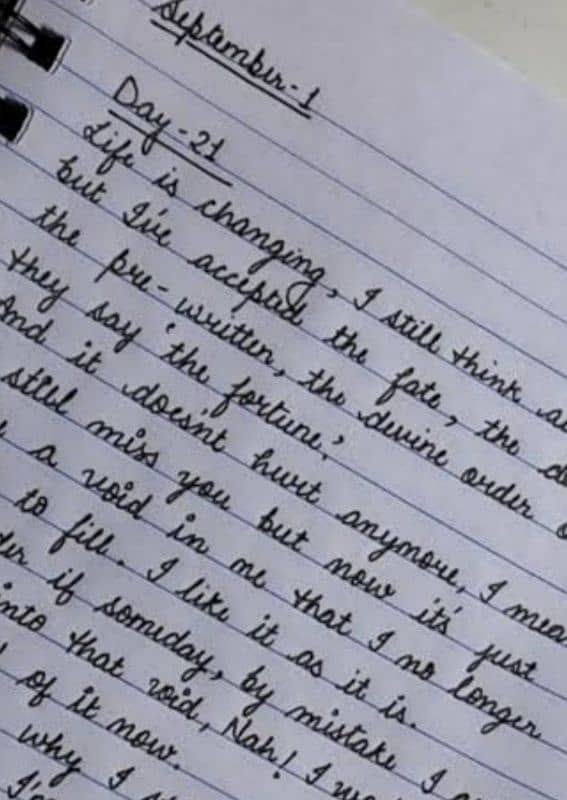 September-1
Day-21
Life is changing, I still think
but I've accepted the fate, the
the pre-written, the devine order
they say 'the fortune.'
And it doesn't hurt anymore, I
still miss you but now it's just
a void in me that I no longer
to fill. I like it as it is.
if someday, by mistake I
into that void, Nah! I
of it now.
why I